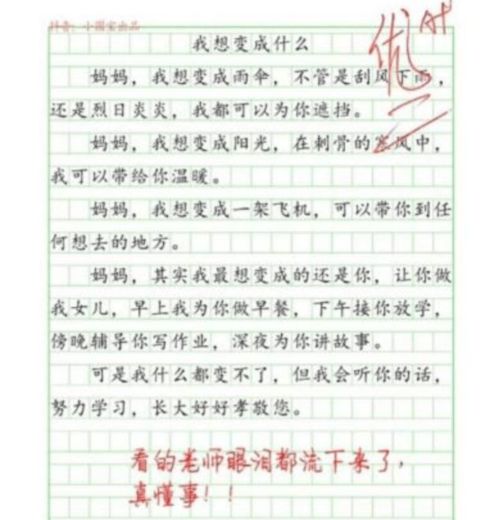 抖音：小圈宝出品
我想变成什么
优 A+
妈妈，我想变成雨伞，不管是刮风下雨，
还是烈日炎炎，我都可以为你遮挡。
妈妈，我想变成阳光，在刺骨的寒风中，
我可以带给你温暖。
妈妈，我想变成一架飞机，可以带你到任
何想去的地方。
妈妈，其实我最想变成的还是你，让你做
我女儿，早上我为你做早餐，下午接你放学，
傍晚辅导你写作业，深夜为你讲故事。
可是我什么都变不了，但我会听你的话，
努力学习，长大好好孝敬您。
看的老师眼泪都流下来了，
真懂事！！